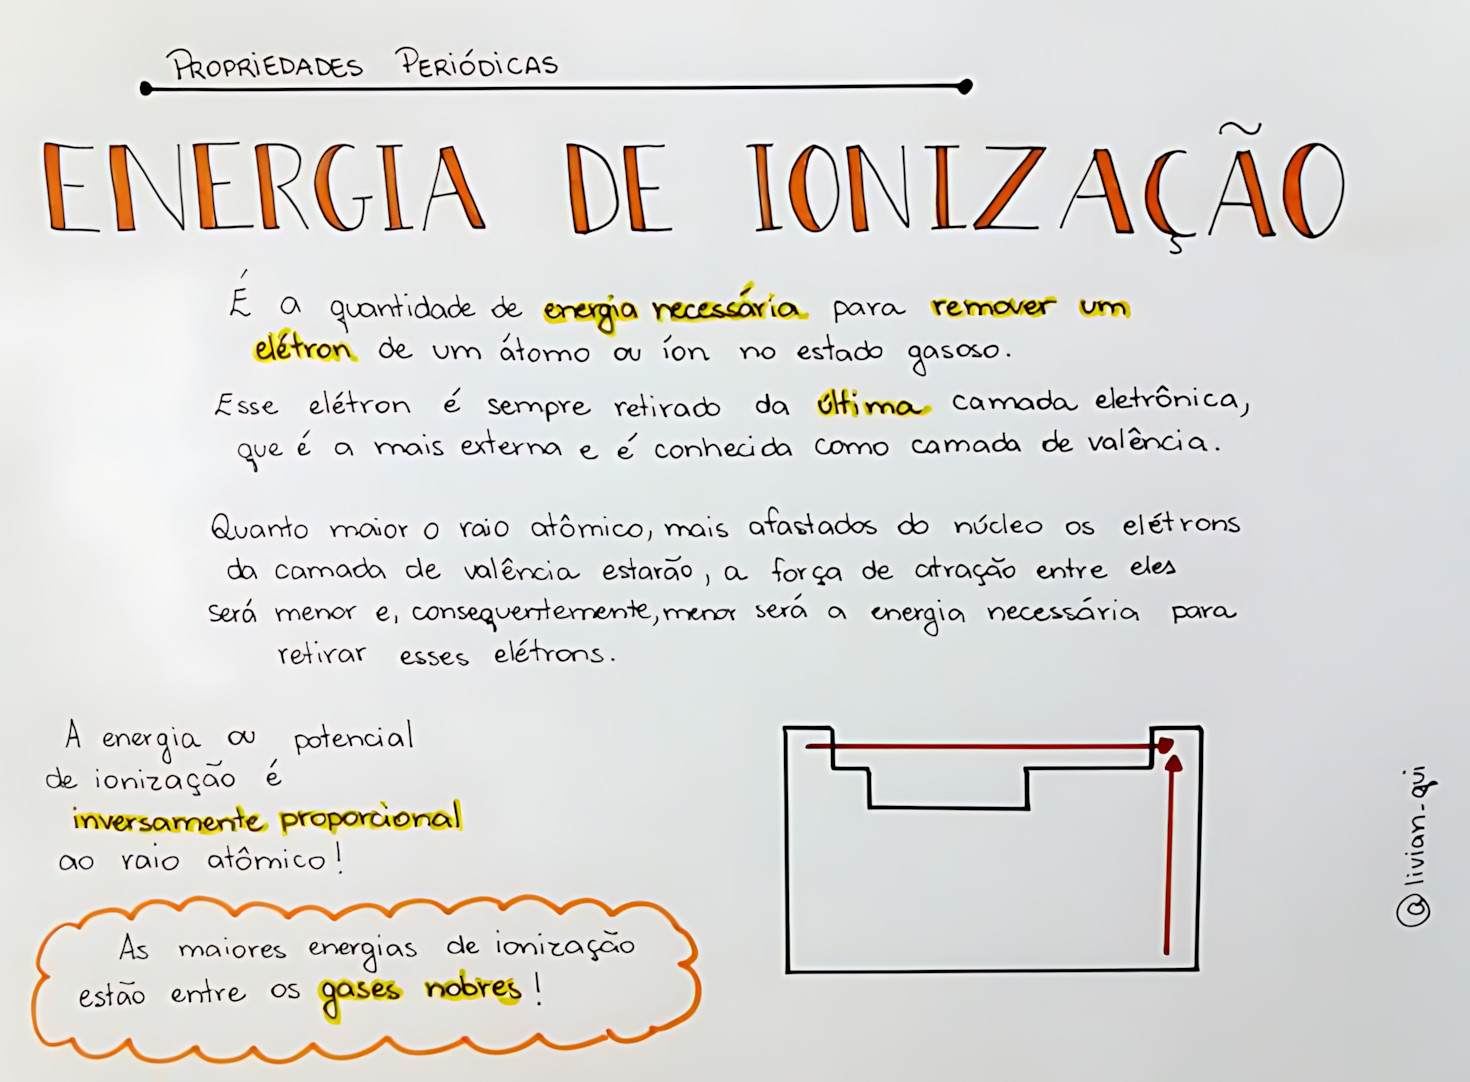 PROPRIEDADES PERIÓDICAS
ENERGIA DE IONIZAÇÃO
É a quantidade de energia necessária para remover um
elétron de um átomo ou íon no estado gasoso.
Esse elétron é sempre retirado da última camada eletrônica,
que é a mais externa e é conhecida como camada de valência.
Quanto maior o raio atômico, mais afastados do núcleo os elétrons
da camada de valência estarão, a força de atração entre eles
será menor e, consequentemente, menor será a energia necessária para
retirar esses elétrons.
A energia ou potencial
de ionização é
inversamente proporcional
ao raio atômico!
As maiores energias de ionização
estão entre os gases nobres!
@livian_qui